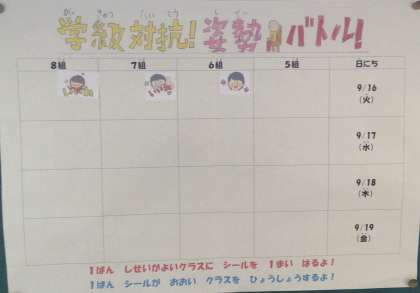 学級対抗!姿勢バトル!
8組 7組 6組 5組 日にち
9/16
(火)
9/17
(水)
9/18
(木)
9/19
(金)
1ばん しせいがよいクラスに シールを 1まい はるよ!
1ばん シールが おおい クラスを ひょうしょうするよ!